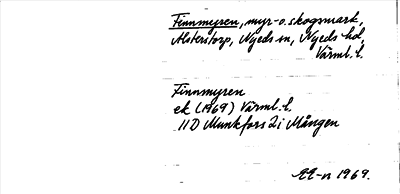 Finnmyren, myr- o. skogsmark,
Alsterstorp, Nyeds sn, Nyeds hd,
Värml. l.
Finnmyren
ek (1969) Värml. l.
11D Munkfors 2i Mången
EE-n 1969.